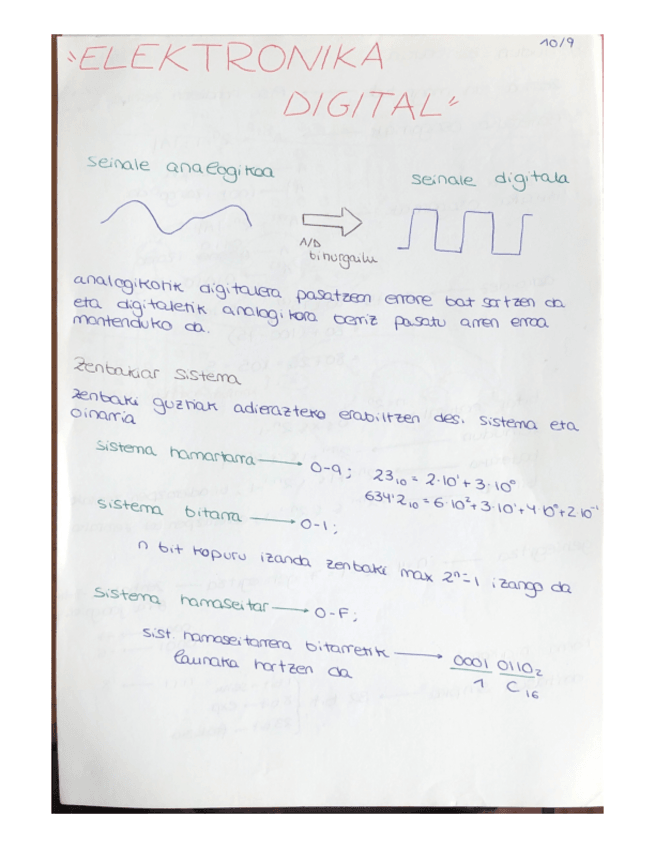 10/9
"ELEKTRONIKA
DIGITAL"
seinale analogikoa
seinale digitala
A/D
bihurgailu
analogikotik digitalera pasatzean errore bat sortzen da
eta digitaletik analogikora berriz pasatu arren errorea
mantenduko da.
Zenbakiar sistema
zenbaki guztiak adierazteko erabiltzen des. sistema eta
oinarria
sistema hamartarra → 0-9; 23₁₀ = 2·10¹ + 3·10⁰
634'2₁₀ = 6·10²+3·10¹+4·10⁰+2·10⁻¹
sistema bitarra → 0-1;
n bit kopuru izanda zenbaki max 2ⁿ-1 izango da
Sistema hamaseitar → 0-F;
sist. hamaseitarrera bitarretik → 0001 0110₂
launaka hartzen da
1 C₁₆